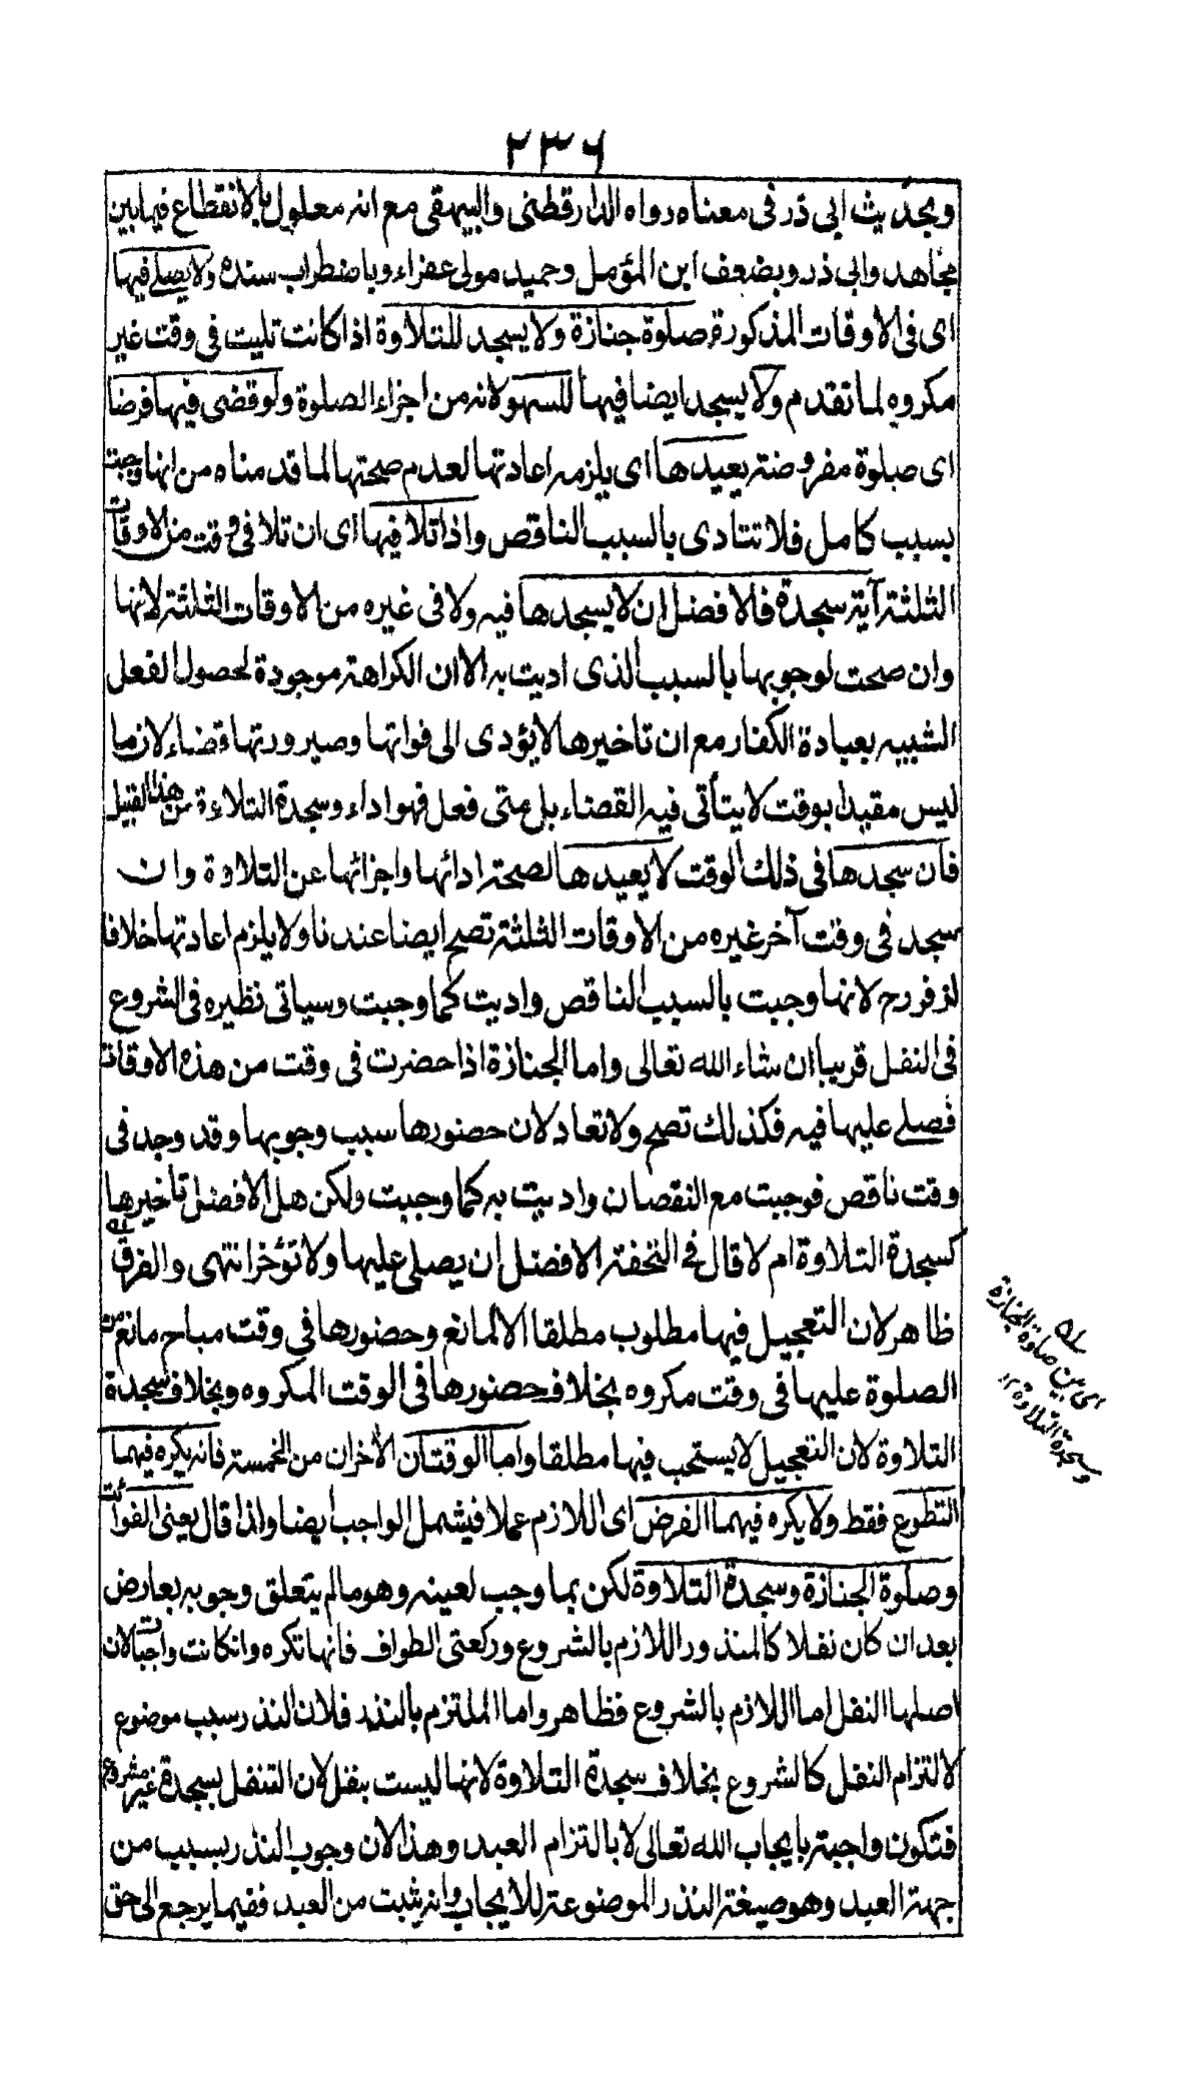 ٢٣٦
وبحديث ابى ذر فى معناه رواه الدارقطنى والبيهقى مع انه معلول بالانقطاع فيما بين
مجاهد وابى ذر وبضعف ابن المؤمل وحميد مولى عفراء وباضطراب سنده ولا يصلى فيها
اى فى الاوقات المذكورة صلوة جنازة ولا يسجد للتلاوة اذا كانت تليت فى وقت غير
مكروه لما تقدم ولا يسجد ايضا فيها للسهو لانه من اجزاء الصلوة ولو قضى فيها فرضا
اى صلوة مفروضة يعيدها اى يلزمه اعادتها لعدم صحتها لما قدمناه من انها وجبت
بسبب كامل فلا تتادى بالسبب الناقص واذا تلا فيها اى ان تلا فى وقت من الاوقات
الثلثة آية سجدة فالافضل ان لا يسجدها فيه ولا فى غيره من الاوقات الثلثة لانها
وان صحت لوجوبها بالسبب الذى اديت به الا ان الكراهة موجودة لحصول الفعل
الشبيه بعبادة الكفار مع ان تاخيرها لا يؤدى الى فواتها وصيرورتها قضاء لان ما
ليس مقيدا بوقت لا يتأتى فيه القضاء بل متى فعل فهو اداء وسجدة التلاءة من هذا القبيل
فان سجدها فى ذلك الوقت لا يعيدها لصحة ادائها واجزائها عن التلاوة وان
سجد فى وقت آخر غيره من الاوقات الثلثة تصح ايضا عندنا ولا يلزم اعادتها خلافا
لزفر رح لانها وجبت بالسبب الناقص واديت كما وجبت وسياتى نظيره فى الشروع
فى النفل قريبا ان شاء الله تعالى واما الجنازة اذا حضرت فى وقت من هذه الاوقات
فصلى عليها فيه فكذلك تصح ولا تعاد لان حضورها سبب وجوبها وقد وجد فى
وقت ناقص فوجبت مع النقصان واديت به كما وجبت ولكن هل الافضل تاخيرها
كسجدة التلاوة ام لا قال فى التحفة الافضل ان يصلى عليها ولا تؤخر انتهى والفرق
ظاهر لان التعجيل فيها مطلوب مطلقا الا لمانع وحضورها فى وقت مباح مانع من
الصلوة عليها فى وقت مكروه بخلاف حضورها فى الوقت المكروه وبخلاف سجدة
التلاوة لان التعجيل لا يستحب فيها مطلقا واما الوقتان الأخران من الخمسة فانه يكره فيهما
التطوع فقط ولا يكره فيهما الفرض اى اللازم عملا فيشمل الواجب ايضا واذا قال يعنى الفوائت
وصلوة الجنازة وسجدة التلاوة لكن بما وجب لعينه وهو مالم يتعلق وجوبه بعارض
بعد ان كان نفلا كالمنذور واللازم بالشروع وركعتى الطواف فانها تكره وان كانت واجبة لان
اصلها النفل اما اللازم بالشروع فظاهر واما الملتزم بالنذر فلان النذر سبب موضوع
لالتزام النفل كالشروع بخلاف سجدة التلاوة لانها ليست بنفل لان التنفل بسجدة غير مشروع
فتكون واجبة بايجاب الله تعالى لا بالتزام العبد وهذا لان وجوب النذر بسبب من
جهة العبد وهو صيغة النذر الموضوعة للايجاب وانه يثبت من العبد فيما يرجع الى حق
اى بين صلوة الجنازة
وسجدة التلاوة ١٢